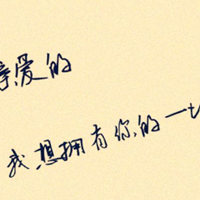 亲爱的
我想拥有你的一